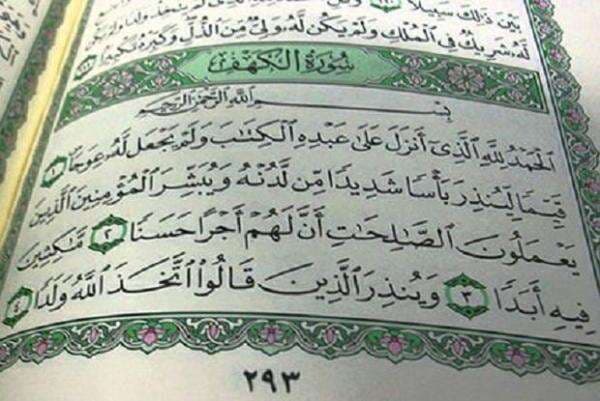 بَيْنَ ذَٰلِكَ سَبِيلًا
لَّهُۥ شَرِيكٌ فِى ٱلْمُلْكِ وَلَمْ يَكُن لَّهُۥ وَلِىٌّ مِّنَ ٱلذُّلِّ وَكَبِّرْهُ تَكْبِيرًۢا
سُورَةُ الكَهْفِ
بِسْمِ ٱللَّهِ ٱلرَّحْمَٰنِ ٱلرَّحِيمِ
ٱلْحَمْدُ لِلَّهِ ٱلَّذِىٓ أَنزَلَ عَلَىٰ عَبْدِهِ ٱلْكِتَٰبَ وَلَمْ يَجْعَل لَّهُۥ عِوَجَاۜ ١
قَيِّمًا لِّيُنذِرَ بَأْسًا شَدِيدًا مِّن لَّدُنْهُ وَيُبَشِّرَ ٱلْمُؤْمِنِينَ ٱلَّذِينَ
يَعْمَلُونَ ٱلصَّٰلِحَٰتِ أَنَّ لَهُمْ أَجْرًا حَسَنًا ٢ مَّٰكِثِينَ
فِيهِ أَبَدًا ٣ وَيُنذِرَ ٱلَّذِينَ قَالُوا۟ ٱتَّخَذَ ٱللَّهُ وَلَدًا ٤
٢٩٣